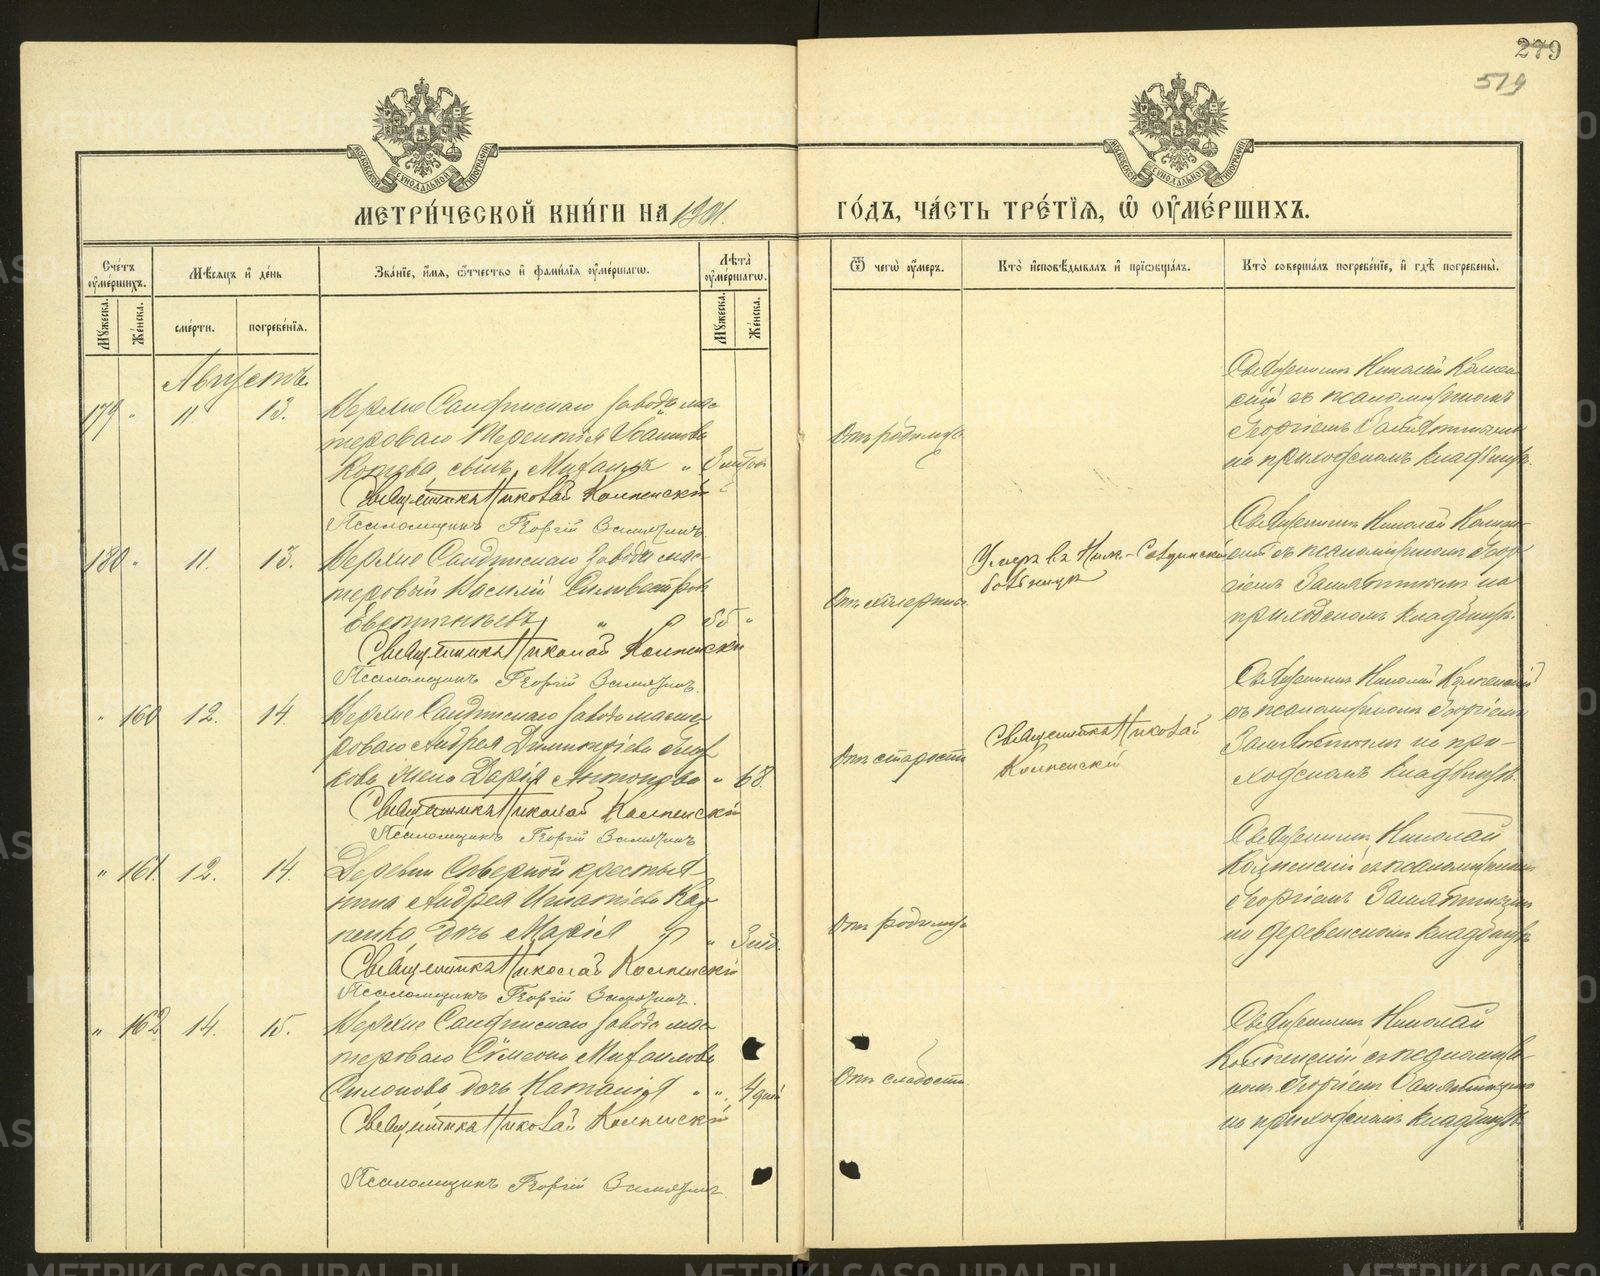 279
519
МОСКОВСКОЙ СѴНОДАЛЬНОЙ ТИПОГРАФІИ
МОСКОВСКОЙ СѴНОДАЛЬНОЙ ТИПОГРАФІИ
МЕТРИ́ЧЕСКОЙ КНИ́ГИ НА 1901.
ГО́ДЪ, ЧА́СТЬ ТРЕ́ТІѦ, Ѿ ОУ҆МЕ́РШИХЪ.
Сче́тъ оу҆ме́ршихъ.
Мꙋжеска.
Же́нска.
Мѣ́сѧцъ и҆ де́нь
сме́рти.
погребе́нїѧ.
Зва́нїе, и҆́мѧ, ѻ҆́тчество и҆ фами́лїѧ оу҆ме́ршагѡ.
Лѣ́та оу҆ме́ршагѡ.
Мꙋжеска.
Же́нска.
Ѿ чегѡ̀ оу҆́меръ.
Кто̀ и҆сповѣ́дывалъ и҆ прїѡбща́лъ.
Кто̀ соверша́лъ погребе́нїе, и҆ гдѣ̀ погребены̀.
Августъ.
179 " 11 13.
Верхне Салдинскаго завода мас-
тероваго Терентія Иванова
сынъ Михаилъ "
Священникъ Николай Колпенскій
Псаломщикъ Георгій Замятинъ
Отъ родимца
Священникъ Николай Колпен-
скій съ псаломщикомъ
Георгіемъ Замятинымъ
на приходскомъ кладбищѣ.
180 " 11. 13.
Верхне Салдинскаго завода мас-
теровый Василій Сильвестровъ
" 55 "
Священникъ Николай Колпенскій
Псаломщикъ Георгій Замятинъ.
Отъ холерины
Умеръ въ Ниж.-Салдинской
больницѣ
Священникъ Николай Колпен-
скій съ псаломщикомъ Геор-
гіемъ Замятинымъ на
приходскомъ кладбищѣ.
" 160 12. 14.
Верхне Салдинскаго завода масте-
роваго Андрея Димитріева
жена Дарія Антонова " 68.
Священникъ Николай Колпенскій
Псаломщикъ Георгій Замятинъ
Отъ старости
Священникъ Николай
Колпенскій
Священникъ Николай Колпенскій
съ псаломщикомъ Георгіемъ
Замятинымъ на при-
ходскомъ кладбищѣ.
" 161. 12. 14.
Деревни Сѣверной крестья-
нина Андрея Игнатіева
дочь Марія "
Священникъ Николай Колпенскій
Псаломщикъ Георгій Замятинъ.
Отъ родимца
Священникъ Николай
Колпенскій съ псаломщикомъ
Георгіемъ Замятинымъ
на деревенскомъ кладбищѣ
" 162 14. 15.
Верхне Салдинскаго завода мас-
тероваго Сѵмеона Михаилова
дочь Наталія " " 4 дней
Священникъ Николай Колпенскій
Псаломщикъ Георгій Замятинъ.
Отъ слабости
Священникъ Николай
Колпенскій съ псаломщи-
комъ Георгіемъ Замятинымъ
на приходскомъ кладбищѣ.
METRIKI.GASO-URAL.RU